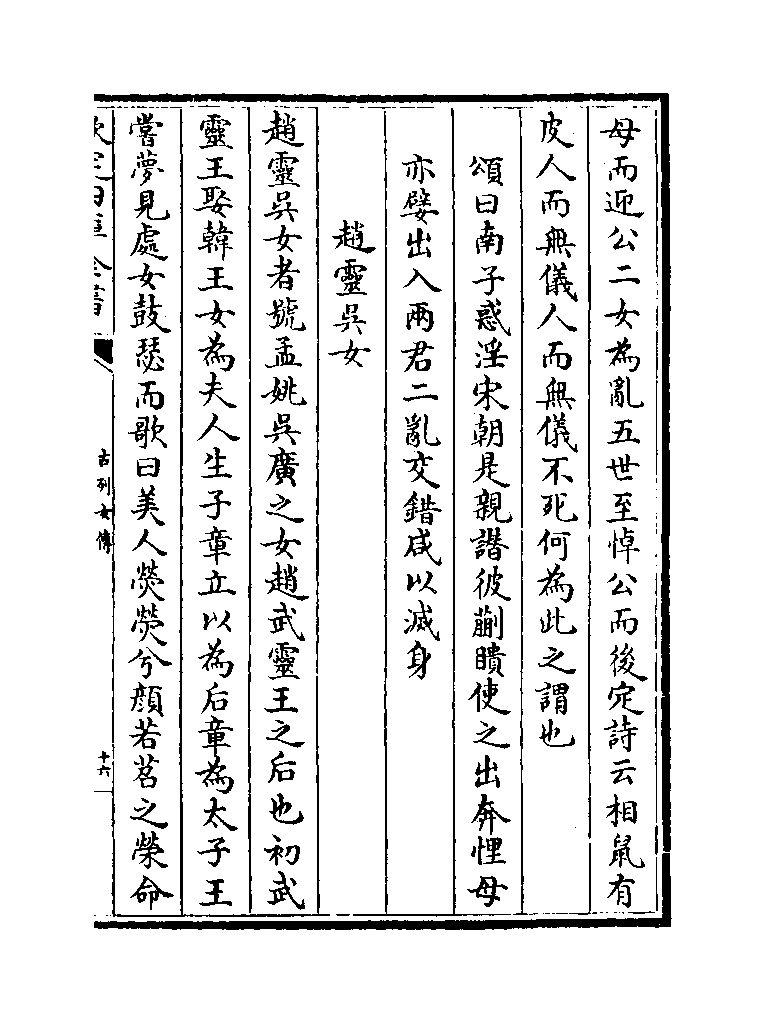 母而迎公二女為亂五世至悼公而後定詩云相鼠有
皮人而無儀人而無儀不死何為此之謂也
頌曰南子惑淫宋朝是親譖彼蒯聵使之出奔悝母
亦嬖出入兩君二亂交錯咸以滅身
趙靈吳女
趙靈吳女者號孟姚吳廣之女趙武靈王之后也初武
靈王娶韓王女為夫人生子章立以為后章為太子王
嘗夢見處女鼓瑟而歌曰美人熒熒兮顏若苕之榮命
欽定四庫全書
古列女傳
十六